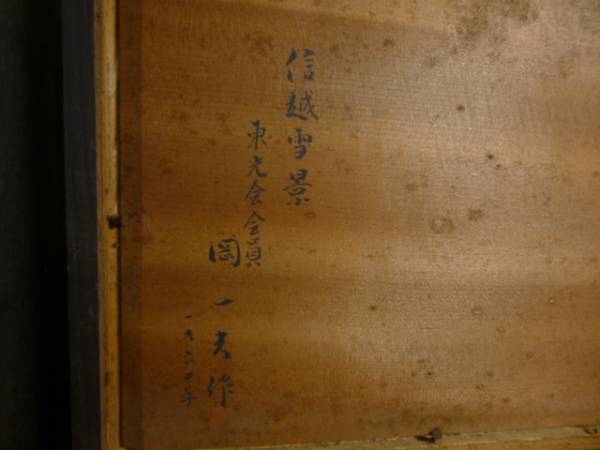 信越雪景
東光会会員
岡一夫作
一九六〇年